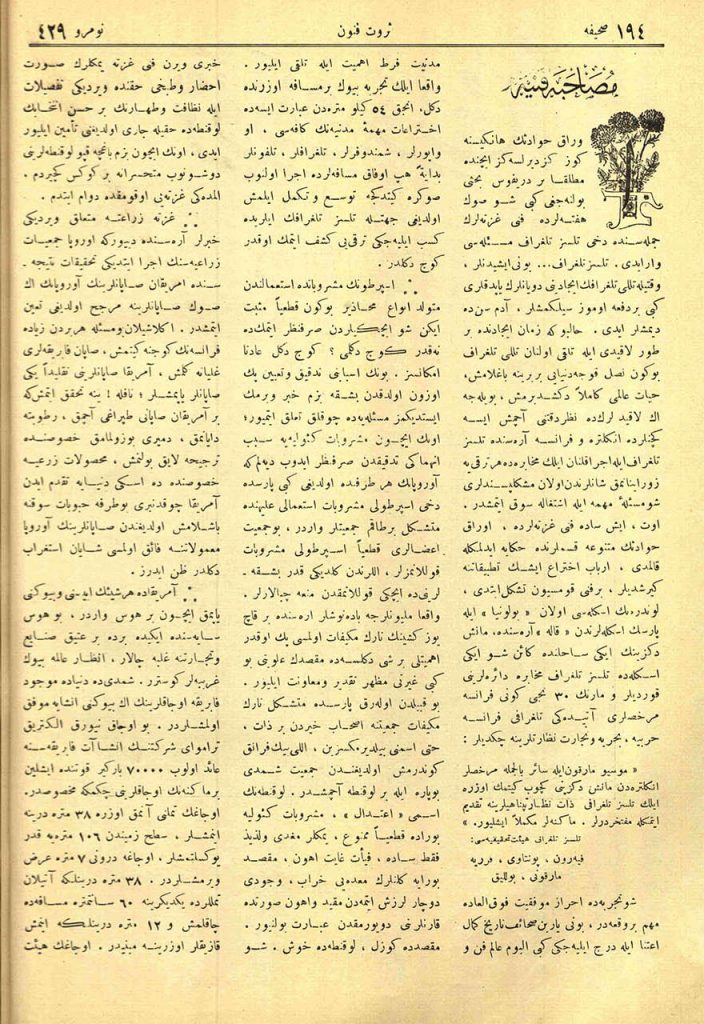 ١٩٤ صحيفه
ثروت فنون
نومرو ٤٢٩
مصاحبهٔ فنيه
وراق حوادثك هانكيسنه
كوز كزديرلسه كز ايچنده
مطلقا بر دريفوس بحثى
بولنه جغى كبى شو صوك
هفته لرده فنى غزته لرك
جمله سنده دخى تلسز تلغراف مسئله سى
وارايدى . تلسز تلغراف... بونى ايشيدنلر ،
وقتيله تللى تلغرافك ايجادينى دويانلرك يابدقلرى
كبى بردفعه اوموز سيلكمشلر ، آدم سن ده
ديمشلر ايدى . حالبو كه زمان ايجادنده بر
طور لاقيدى ايله تلقى اولنان تللى تلغراف
بوكون نصل قوجه دنيايى بر برينه باغلامش ،
حيات عالمى كاملاً دكشديرمش ، بويله جه
اك لاقيد لرك ده نظر دقتنى آچمش ايسه
كچنلرده انكلتره و فرانسه آره سنده تلسز
تلغراف ايله اجرا قلنان ايلك مخابره ده هر ترقى يه
زور اينانمق شانلرندن اولان مشكلپسندلرى
شو مسئلهٔ مهمه ايله اشتغاله سوق ايتمشدر .
اوت ، ايش ساده فنى غزته لرده ، اوراق
حوادثك متنوعه قسملرنده حكايه ايدلمكله
قالمدى ، ارباب اختراع ايشك تطبيقاتنه
كيرشديلر ، برفنى قومسيون تشكل ايتدى ،
لوندره نك اسكله سى اولان « بولونيا » ايله
پارسك اسكله لرندن « قاله » آره سنده ، مانش
دكزينك ايكى ساحلنده كائن شو ايكى
اسكله ده تلسز تلغراف مخابره دائره لرينى
قورديلر و مارتك ٣٠ نجى كونى فرانسه
مرخصلرى آتيده كى تلغرافى فرانسه
حربيه ، بحريه و تجارت نظارتلرينه چكديلر :
« موسيو مارقونى ايله سائر بالجمله مرخصلر
انكلتره دن مانش دكزينى كچوب كيتمك اوزره
ايلك تلسز تلغرافى ذات نظارتپناهيلرينه تقديم
ايتمكله مفتخردرلر . ماكنه لر مكملاً ايشليور . »
تلسز تلغرافى هيئت تحقيقيه سى :
فيه رون ، پونتاوى ، فرريه
مارقونى ، بولليق
شو تجربه ده احراز موفقيت فوق العاده
مهم بروقعه در ، بونى يارين صحائف تاريخ كمال
اعتنا ايله درج ايليه جكى كبى اليوم عالم فن و
مدنيت فرط اهميت ايله تلقى ايليور .
واقعا ايلك تجربه بيوك بر مسافه اوزرنده
دكل ، آنجق ٥٤ كيلو متره دن عبارت ايسه ده
اختراعات مهمهٔ مدنيه نك كافه سى ، او
واپورلر ، شمندوفرلر ، تلغرافلر ، تلفونلر
بدايةً هپ اوفاق مسافه لرده اجرا اولنوب
صوكره كيتدكجه توسع و تكمل ايلمش
اولديغى جهتله تلسز تلغرافك ايلريده
كسب ايليه جكى ترقى يى كشف ايتمك اوقدر
كوچ دكلدر .
∴ اسپرطونك مشروباتده استعمالندن
متولد انواع محاذير بوكون قطعياً مثبت
ايكن شو ايچكيلردن صرفنظر ايتمك ده
نه قدر كوچ دكلمى ؟ كوچ دكل عادتا
امكانسز . بونك اسبابنى تدقيق و تعيين پك
اوزون اولدقدن بشقه بزم خبر ويرمك
ايستديكمز مسئله يه ده چوقلق تعلق ايتميور ؛
اونك ايچون مشروبات كئوليه يه سبب
انهماكى تدقيقدن صرفنظر ايدوب ديه لم كه
آوروپانك هر طرفنده اولديغى كبى پارسده
دخى اسپرطولى مشروبات استعمالى عليهنده
متشكل برطاقم جمعيتلر واردر ، بوجمعيت
اعضالرى قطعياً اسپرطولى مشروبات
قوللانمزلر ، اللرندن كلديكى قدر بشقه ـ
لرينى ده ايچكى قوللانمقدن منعه چاليرلر .
واقعا مليونلرجه باده نوشلر اره سنده بر قاچ
يوز كشينك تارك مكيفات اولمسى پك اوقدر
اهميتلى بر شى دكلسه ده مقصدك علويتى بو
كبى غيرتى مظهر تقدير و معاونت ايليور .
بو قبيلدن اوله رق پارسده متشكل تارك
مكيفات جمعيتنه اصحاب خيردن بر ذات ،
حتى اسمنى بيلديرمكسزين ، اللى بيك فرانق
كوندرمش اولديغندن جمعيت شمدى
بوپاره ايله بر لوقنطه آچمشدر . لوقنطه نك
اسمى « اعتدال » ، مشروبات كئوليه
بوراده قطعياً ممنوع ، يمكلر مغدى ولذيذ
فقط ساده ، فيأت غايت اهون ، مقصد
بورايه كلنلرك معده يى خراب ، وجودى
دوچار لرزش ايتمه دن مفيد و اهون صورتده
قارنلرينى دويورمقدن عبارت بولنيور .
مقصدده كوزل ، لوقنطه ده خوش . شو
خبرى ويرن فنى غزته يمكلرك صورت
احضار و طبخى حقنده ويرديكى تفصيلات
ايله نظافت و طهارتك بر حسن انتخابك
لوقنطه ده حقيله جارى اولديغنى تأمين ايليور
ايدى ، اونك ايچون بزم باغچه قپو لوقنطه لرينى
دوشونوب متحسرانه بر كوكس كچيردم .
المده كى غزته يى اوقومقده دوام ايتدم .
∴ غزته زراعته متعلق ويرديكى
خبرلر آره سنده ديوركه اوروپا جمعيات
زراعيه سنك اجرا ايتديكى تحقيقات نتيجه ـ
سنده امريقان صاپانلرينك آوروپانك اك
صوك صاپانلرينه مرجح اولديغى تعين
ايتمشدر . اكلاشيلان و مسئله هر يردن زياده
فرانسه نك كوجنه كيتمش ، صاپان فابريقه لرى
غليانه كلمش ، آمريقا صاپانلرينى تقليداً يكى
صاپانلر ياپمشلر ؛ نافله ! ينه تحقق ايتمش كه
بر آمريقان صاپانى طپراغى آچمق ، رطوبته
دايانمق ، دميرى بوزولمامق خصوصنده
ترجيحه لايق بولنمش ، محصولات زرعيه
خصوصنده ده اسكى دنيايه تقدم ايدن
آمريقا چوقدنبرى بوطرفه حبوبات سوقنه
باشلامش اولديغندن صاپانلرينك آوروپا
معمولاتنه فائق اولمسى شايان استغراب
دكلدر ظن ايدرز .
∴ آمريقاده هرشيئك اييسنى و بيوكنى
ياپمق ايچون بر هوس واردر ، بو هوس
سايه سنده ايكيده برده بر عتيق صنايع
و تجارتنه غلبه چالار ، انظار عالمه بيوك
غريبه لر كوستر . شمدى ده دنياده موجود
فابريقه اوجاقلرينك اك بيوكنى انشايه موفق
اولمشلردر . بو اوجاق نيورق الكتريق
تراموای شركتنك انشاآت فابريقه سنه
عائد اولوب ٧٠٠٠٠ باركير قوتنده ايشلين
بر ماكنه نك اوجاقلرينى چكمكه مخصوصدر .
اوجاغك تملنى آتمق اوزره ٣٨ متره درينه
ايتمشلر ، سطح زميندن ١٠٦ متره يه قدر
يوكسلتمشلر ، اوجاغه درونى ٧ متره عرض
ويرمشلردر . ٣٨ متره درينلكه آتيلان
تمللرده يكديكرينه ٦٠ سانتمتره مسافه ده
چاقلمش و ١٢ متره درينلكه ايتمش
قازيقلر اوزرينه مبنيدر . اوجاغك هيئت